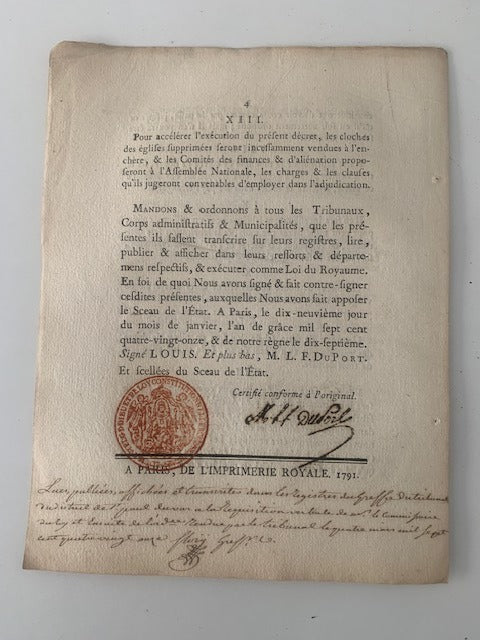 4
XIII.
Pour accélérer l'exécution du présent décret, les cloches
des églises supprimées seront incessamment vendues à l'en-
chère, & les Comités des finances & d'aliénation propo-
seront à l'Assemblée Nationale, les charges & les clauses
qu'ils jugeront convenables d'employer dans l'adjudication.
MANDONS & ordonnons à tous les Tribunaux,
Corps administratifs & Municipalités, que les pré-
sentes ils fassent transcrire sur leurs registres, lire,
publier & afficher dans leurs ressorts & départe-
mens respectifs, & exécuter comme Loi du Royaume.
En foi de quoi Nous avons signé & fait contre-signer
cesdites présentes, auxquelles Nous avons fait apposer
le Sceau de l'État. A Paris, le dix-neuvième jour
du mois de janvier, l'an de grâce mil sept cent
quatre-vingt-onze, & de notre règne le dix-septième.
Signé LOUIS. Et plus bas, M. L. F. DUPORT.
Et scellées du Sceau de l'État.
Certifié conforme à l'original.
M L F DuPort
A PARIS, DE L'IMPRIMERIE ROYALE. 1791.
Lues, publiées, affichées et transcrites dans les registres du Greffe du tribunal
du district de St paul a la requisition verbale de mr le Commissaire
du roy et en suite de rendue par le tribunal le quatre mars mil sept
cent quatre vingt onze